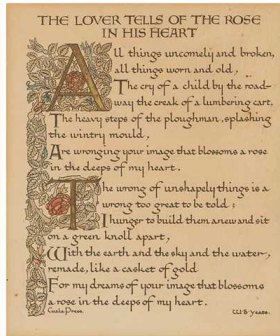 THE LOVER TELLS OF THE ROSE
IN HIS HEART
All things uncomely and broken,
all things worn and old,
The cry of a child by the road-
way the creak of a lumbering cart,
The heavy steps of the ploughman, splashing
the wintry mould,
Are wronging your image that blossoms a rose
in the deeps of my heart.
The wrong of unshapely things is a
wrong too great to be told;
I hunger to build them anew and sit
on a green knoll apart,
With the earth and the sky and the water,
remade, like a casket of gold
For my dreams of your image that blossoms
a rose in the deeps of my heart.
Cuala Press. W·B·Yeats.